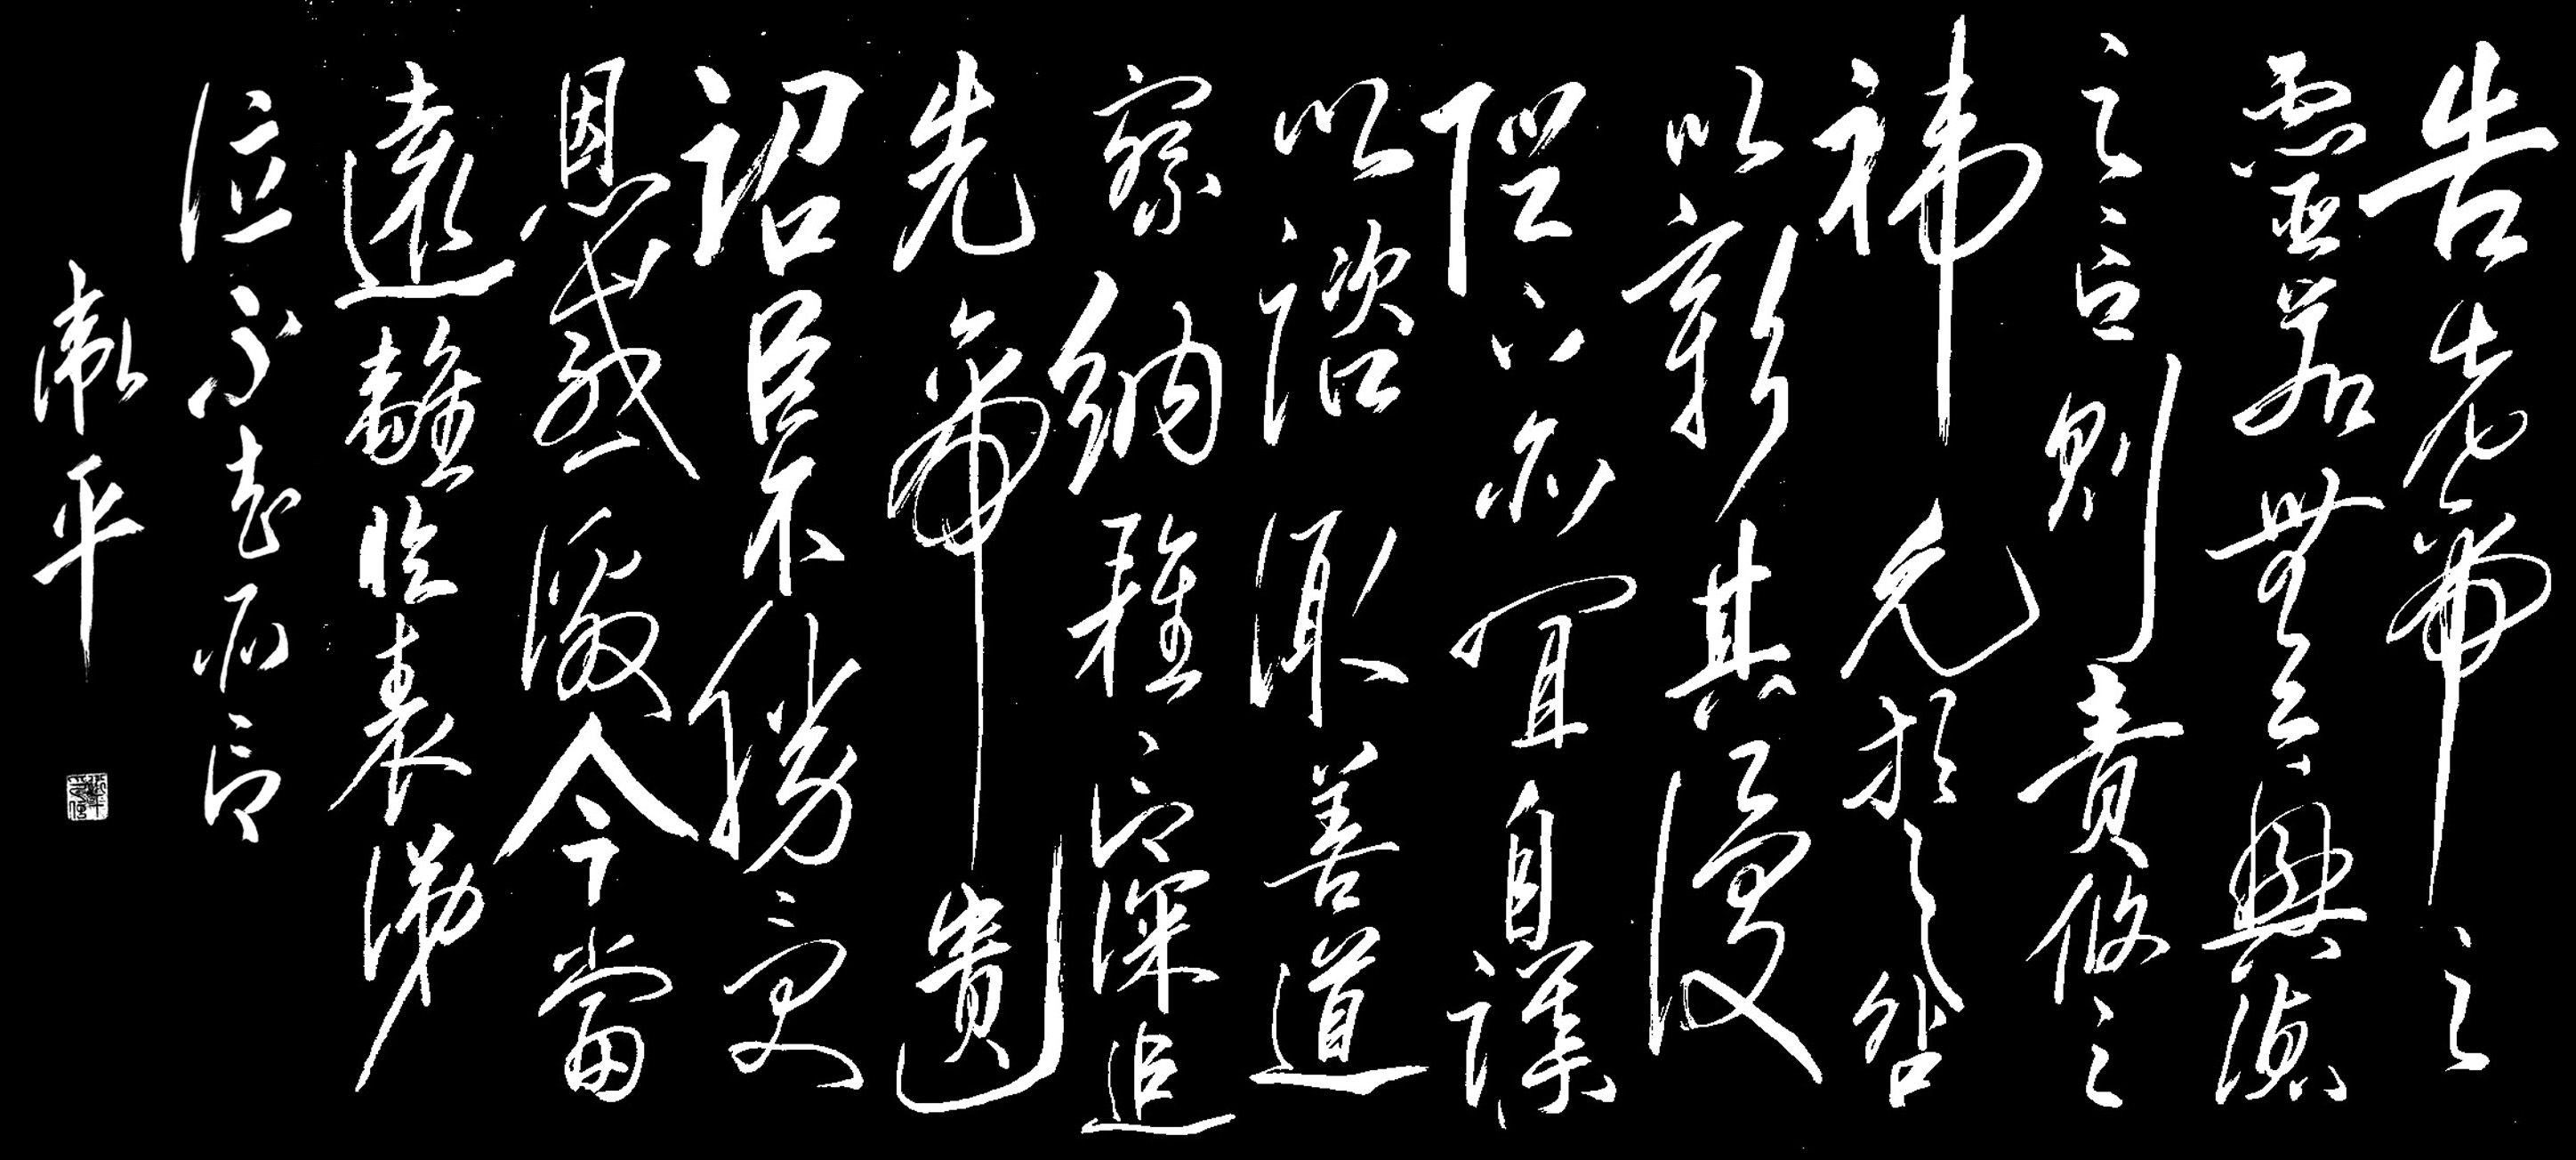 告先帝之
靈若無興德
之言則責攸之
禕允等之咎
以彰其慢
陛下亦宜自謀
以諮諏善道
察納雅言深追
先帝遺
詔臣不勝受
恩感激今當
遠離臨表涕
泣不知所言
平